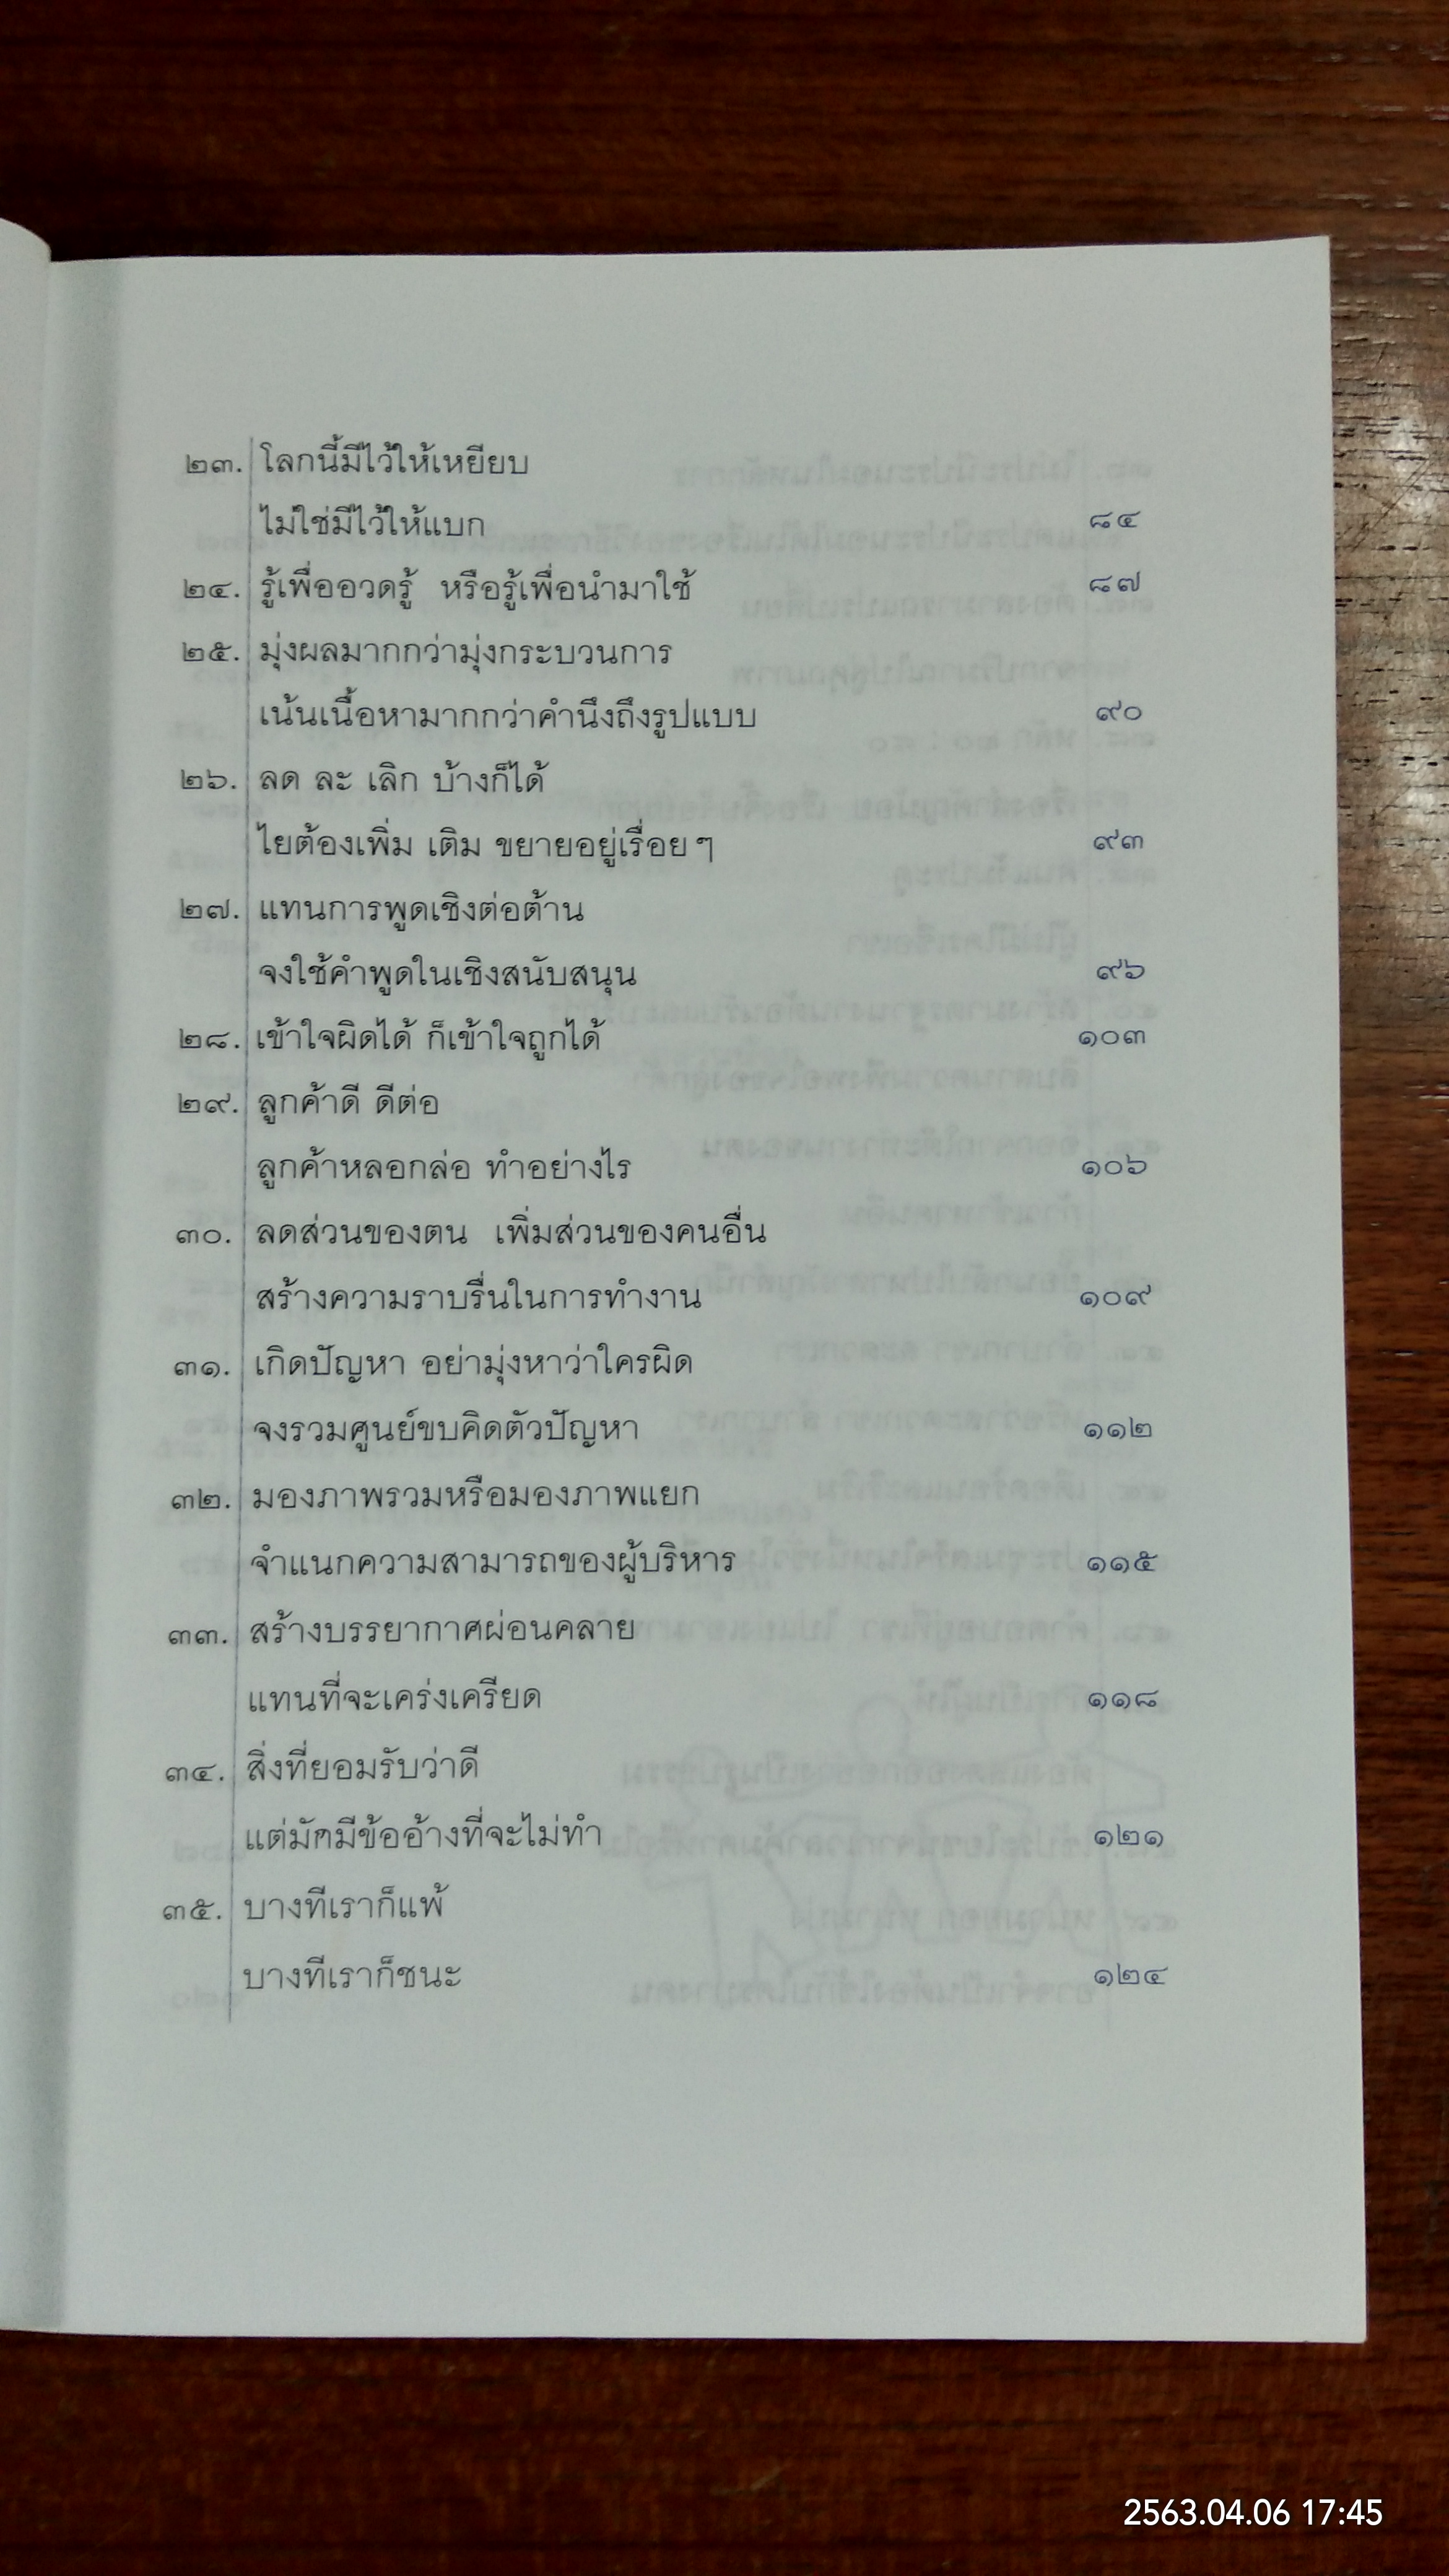 ๒๓. โลกนี้มีไว้ให้เหยียบ
ไม่ใช่มีไว้ให้แบก ๘๔
๒๔. รู้เพื่ออวดรู้ หรือรู้เพื่อนำมาใช้ ๘๗
๒๕. มุ่งผลมากกว่ามุ่งกระบวนการ
เน้นเนื้อหามากกว่าคำนึงถึงรูปแบบ ๙๐
๒๖. ลด ละ เลิก บ้างก็ได้
ไยต้องเพิ่ม เติม ขยายอยู่เรื่อย ๆ ๙๓
๒๗. แทนการพูดเชิงต่อต้าน
จงใช้คำพูดในเชิงสนับสนุน ๙๖
๒๘. เข้าใจผิดได้ ก็เข้าใจถูกได้ ๑๐๓
๒๙. ลูกค้าดี ดีต่อ
ลูกค้าหลอกล่อ ทำอย่างไร ๑๐๖
๓๐. ลดส่วนของตน เพิ่มส่วนของคนอื่น
สร้างความราบรื่นในการทำงาน ๑๐๙
๓๑. เกิดปัญหา อย่ามุ่งหาว่าใครผิด
จงรวมศูนย์ขบคิดตัวปัญหา ๑๑๒
๓๒. มองภาพรวมหรือมองภาพแยก
จำแนกความสามารถของผู้บริหาร ๑๑๕
๓๓. สร้างบรรยากาศผ่อนคลาย
แทนที่จะเคร่งเครียด ๑๑๘
๓๔. สิ่งที่ยอมรับว่าดี
แต่มักมีข้ออ้างที่จะไม่ทำ ๑๒๑
๓๕. บางทีเราก็แพ้
บางทีเราก็ชนะ ๑๒๔
2563.04.06 17:45